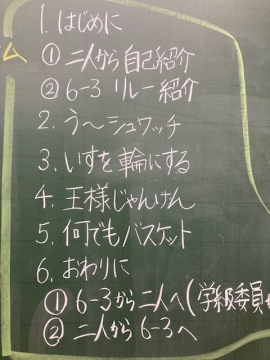 1. はじめに
① 二人から自己紹介
② 6-3 リレー紹介
2. う〜シュワッチ
3. いすを輪にする
4. 王様じゃんけん
5. 何でもバスケット
6. おわりに
① 6-3から二人へ(学級委員
② 二人から6-3へ